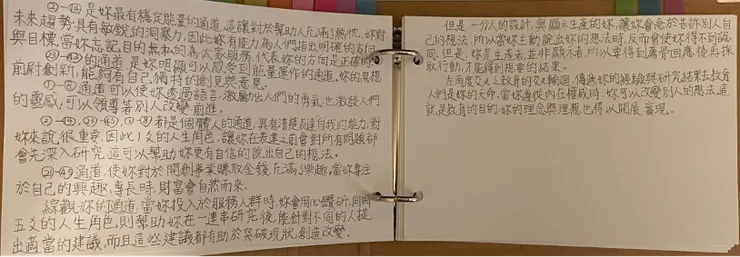 ②-⑭ 是妳最有穩定能量的通道,這讓對於幫助人充滿了熱忱,妳對
未來趨勢具有敏銳的洞察力,因此妳有能力為人們指出明確的方向
與目標,當妳忘記目的無私的為大家服務,代表妳的方向是正確的
的通道,是妳明顯可以感受到能量運作的通道,妳的思想
前尉創新,能夠有自己獨特的創見與意見。
①-⑧通道可以使妳透過語言,激勵出人們的勇氣,也激發人們
的靈感,可以領導著別人改變前進。
都是個體人的通道,具有清楚表達自我的能力,對
妳來說很重要,因此1爻的人生角色,讓妳在表達之前會對所有問題都
會先深入研究,這可以幫助妳更有自信的說出自己的想法。
㉑-㊺通道,使妳對於開創事業賺取金錢,充滿了樂趣,當妳專注
於自己的興趣、專長時,財富會自然而來。
綜觀妳的通道,當妳投入於服務人群時,妳會用心鑽研,同時
五爻的人生角色,則幫助妳在一連串研究後,能針對不同的人提
出適當的建議,而且這些建議都有助於突破現狀,創造改變。
但是一分人的設計,與顯示生產的妳,讓妳會急於告訴別人自
己的想法,所以當妳主動說出妳的想法時,反而會使妳得不到認
同,但是,妳是生產者,並非顯示者,所以要得到薦骨回應後再採
取行動,才能得到想要的結果。
左角度交叉之教育的交叉輪迴,傳遞妳的經驗與研究結果去教育
人們是妳的天命,當妳遵從內在權威時,妳可以改變別人的想法,這
就是教育的目的,妳的理念與理想也得以開展、實現。